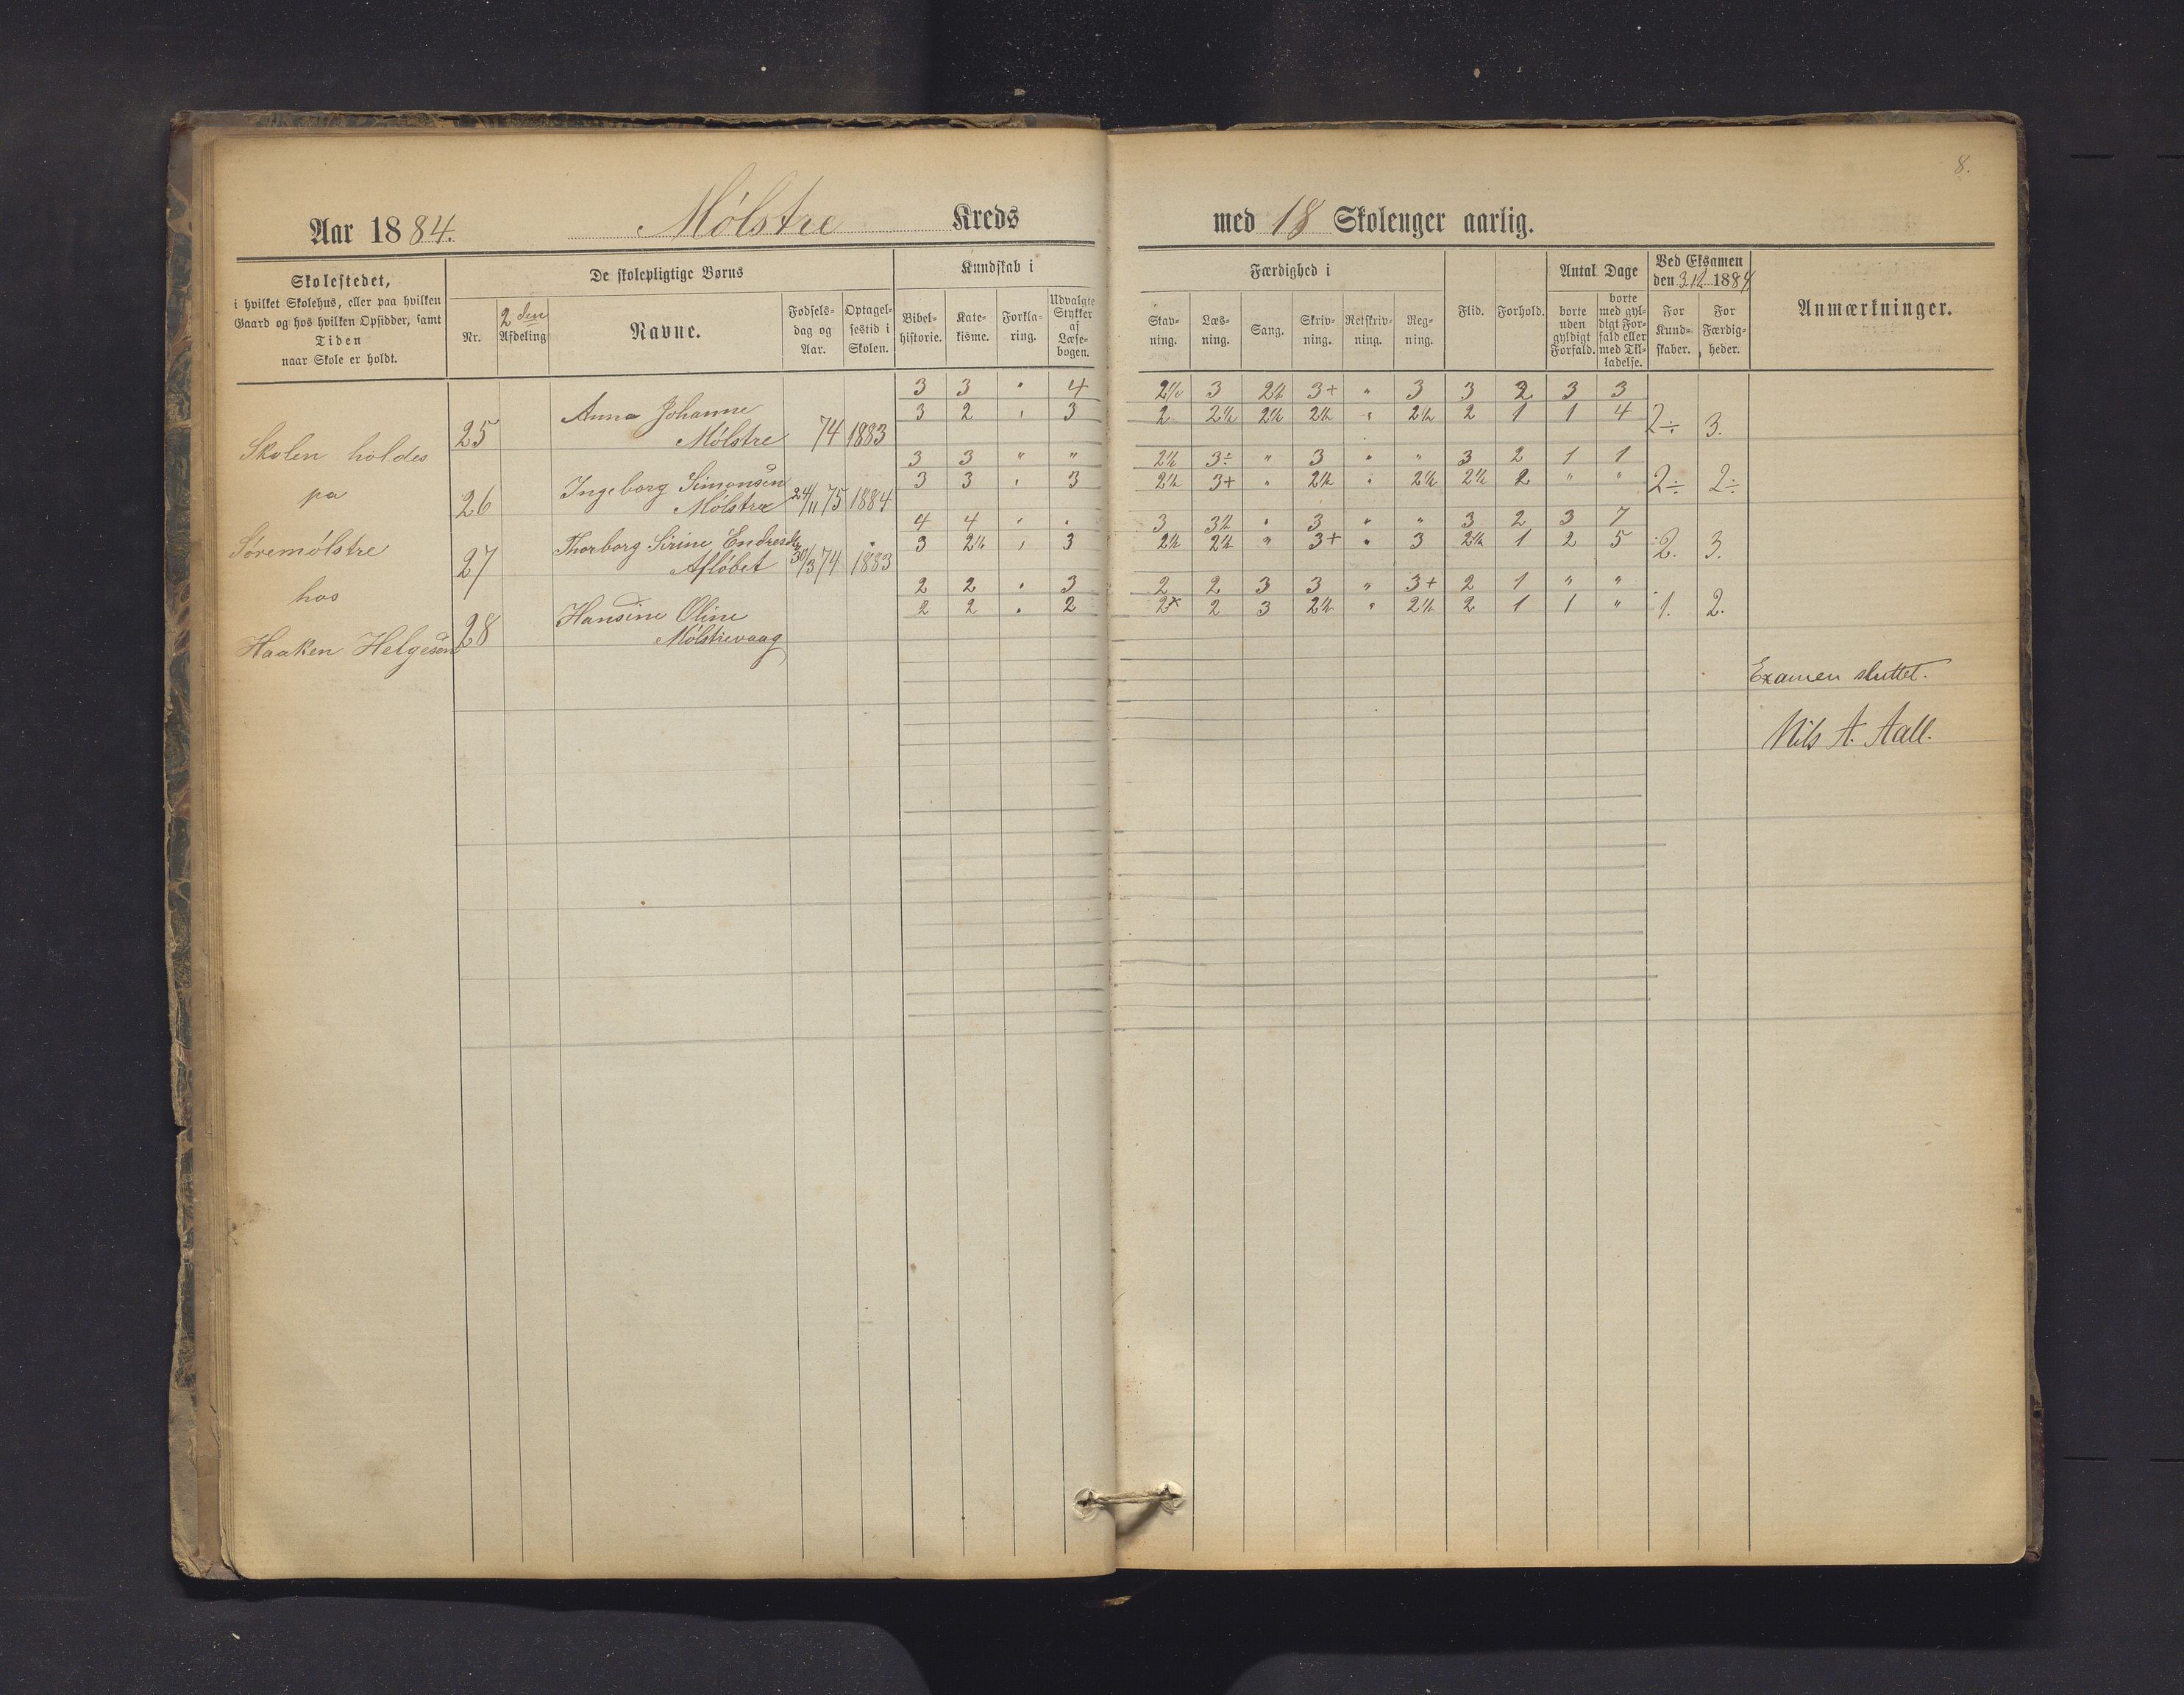 8.
Aar 1884. Mølstre Kreds med 18 Skoleuger aarlig.
Skolestedet,
i hvilket Skolehus, eller paa hvilken
Gaard og hos hvilken Opsidder, samt
Tiden
naar Skole er holdt.
De skolepligtige Børns
Nr.
2den
Afdeling
Navne.
Fødsels-
dag og
Aar.
Optagel-
sestid i
Skolen.
Kundskab i
Bibel-
historie.
Kate-
kisme.
Forkla-
ring.
Udvalgte
Stykker
af
Læse-
bogen.
Færdighed i
Stav-
ning.
Læs-
ning.
Sang.
Skriv-
ning.
Retskriv-
ning.
Reg-
ning.
Flid.
Forhold.
Antal Dage
borte
uden
gyldigt
Forfald.
borte
med gyl-
digt For-
fald eller
med Til-
ladelse.
Ved Eksamen
den 3/12 1884
For
Kund-
skaber.
For
Færdig-
heder.
Anmærkninger.
Skolen holdes
pa
Søremølstre
hos
Haaken Helgesen
3 3 " 4 2½ 3 2½ 3+ " 3 3 2 3 3
25 Anna Johanne
Mølstre 74 1883
3 2 " 3 2 2½ 2½ 2½ " 2½ 2 1 1 4 2÷ 3.
3 3 " " 2½ 3÷ " 3 " " 3 2 1 1
26 Ingeborg Simonsen
Mølstre 24/11 75 1884
3 3 " 3 2½ 3+ " 2½ " 2½ 2½ 2 " " 2÷ 2÷
4 4 " " 3 3½ " 3 " " 3 2 3 7
27 Thorborg Sirine Endresdr
Afløbet 30/3 74 1883
3 2½ " 3 2½ 2½ " 3+ " 3 2½ 1 2 5 2. 3.
2 2 " 3 2 2 3 3 " 3+ 2 1 " "
28 Hansine Oline
Mølstrevaag
2 2 " 2 2x 2 3 2½ " 2½ 2 1 1 " 1. 2.
Examen sluttet.
Nils A. Aall.